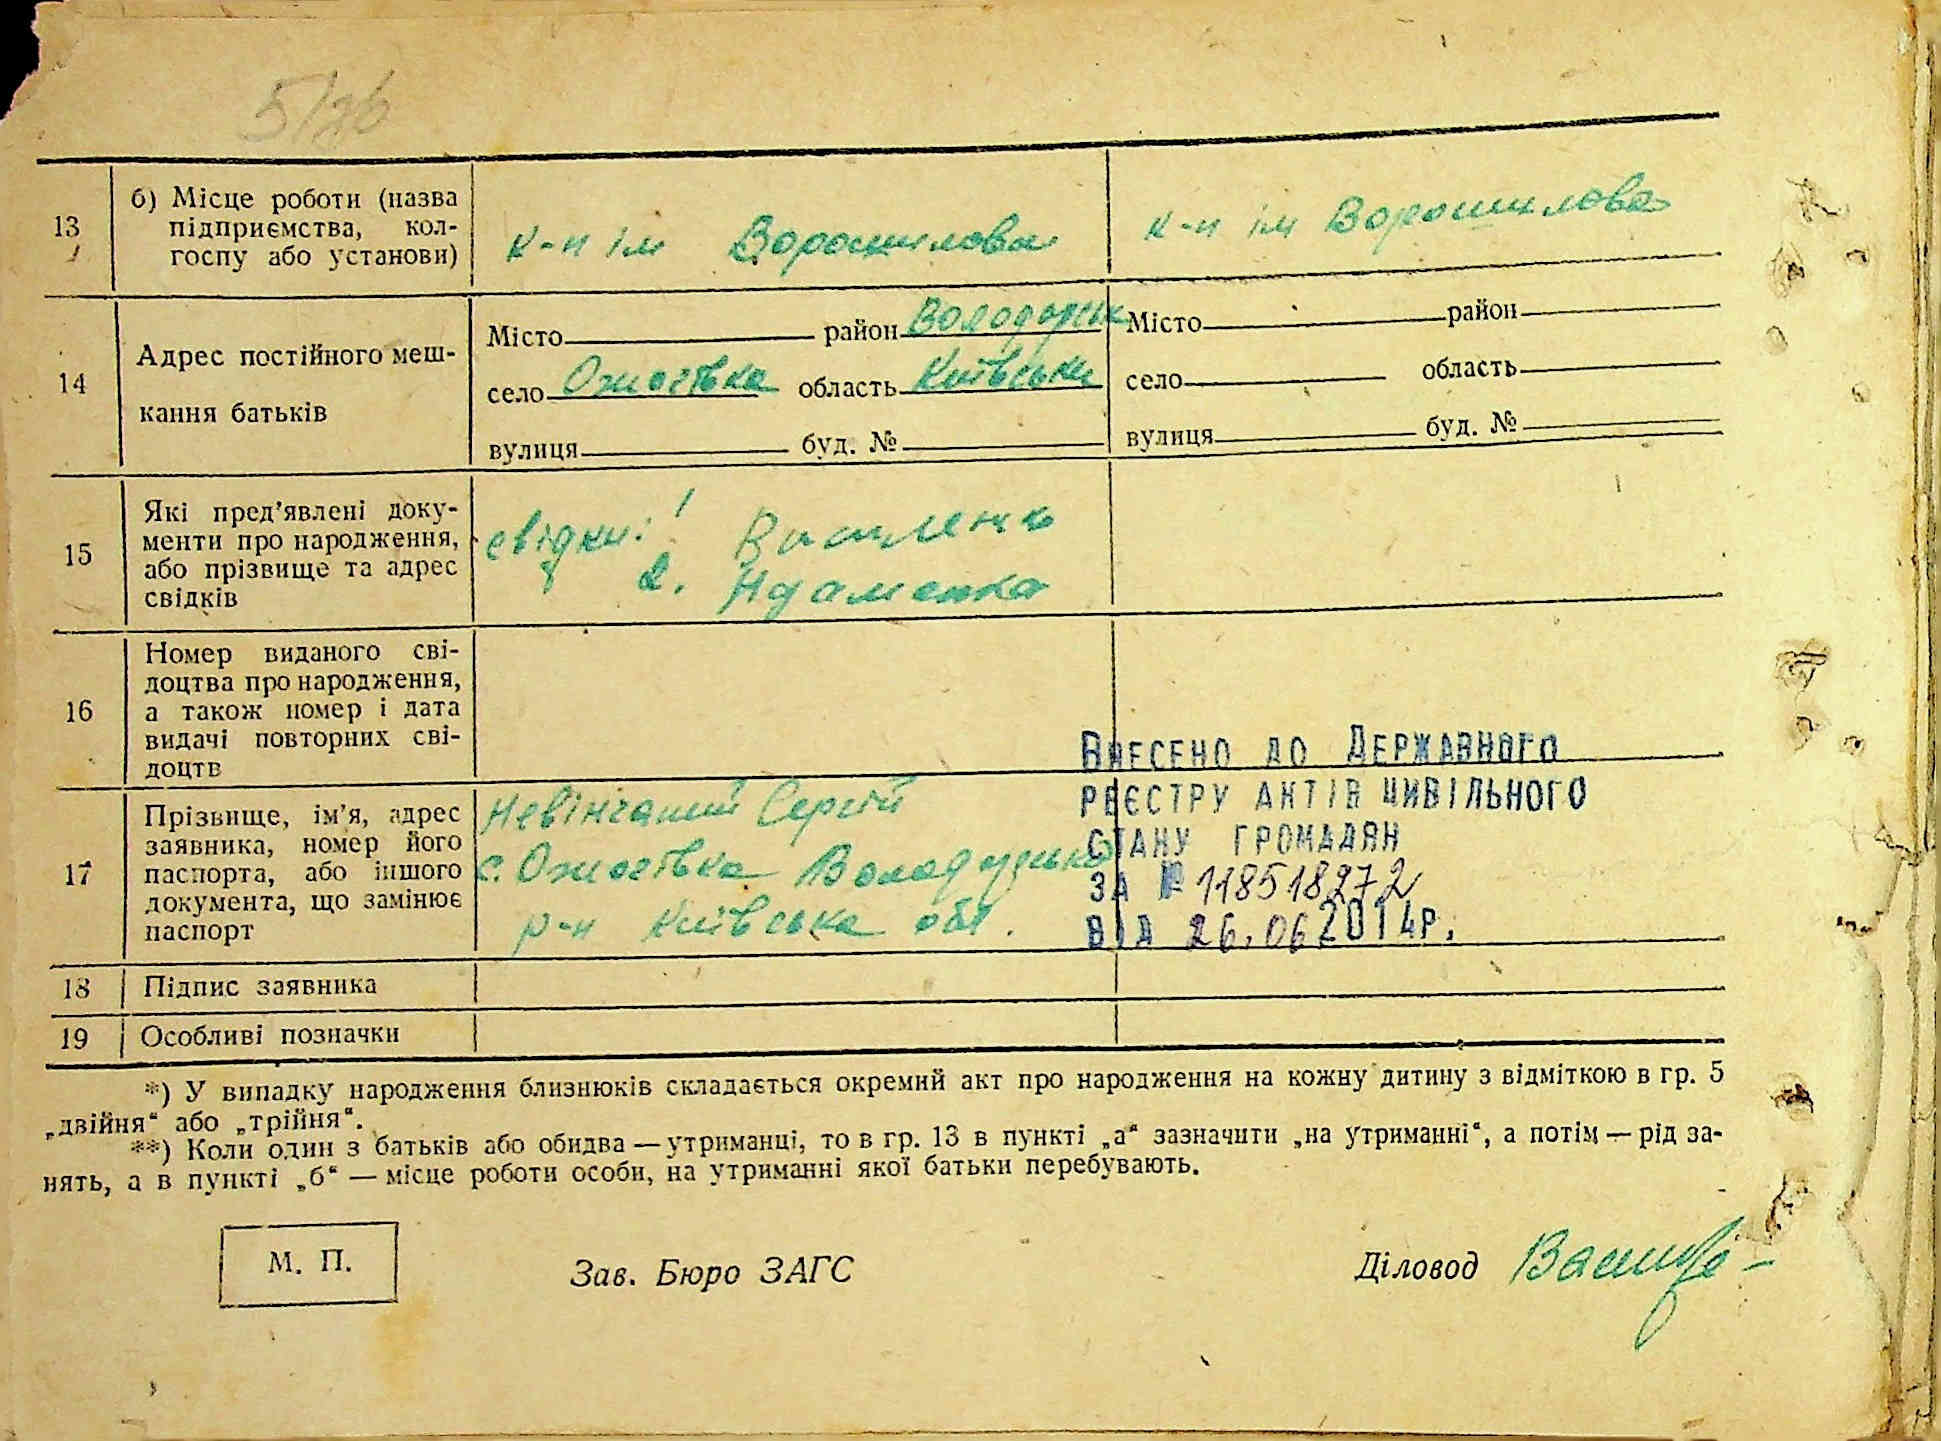 13
б) Місце роботи (назва
підприємства, кол-
госпу або установи)
к-п ім Ворошилова
к-п ім Ворошилова
14
Адрес постійного меш-
кання батьків
Місто район Володарськ
село Ожогівка область Київська
вулиця буд. №
Місто район
село область
вулиця буд. №
15
Які пред’явлені доку-
менти про народження,
або прізвище та адрес
свідків
свідки: 1
2. Адаменко
16
Номер виданого сві-
доцтва про народження,
а також номер і дата
видачі повторних сві-
доцтв
17
Прізвище, ім’я, адрес
заявника, номер його
паспорта, або іншого
документа, що замінює
паспорт
Невінчаний Сергій
с. Ожогівка
р-н Київська обл.
Внесено до Державного
реєстру актів цивільного
стану громадян
за № 118518272
від 26.06 2014р.
18
Підпис заявника
19
Особливі позначки
*) У випадку народження близнюків складається окремий акт про народження на кожну дитину з відміткою в гр. 5
„двійня“ або „трійня“.
**) Коли один з батьків або обидва — утриманці, то в гр. 13 в пункті „а“ зазначити „на утриманні“, а потім — рід за-
нять, а в пункті „б“ — місце роботи особи, на утриманні якої батьки перебувають.
М. П.
Зав. Бюро ЗАГС
Діловод